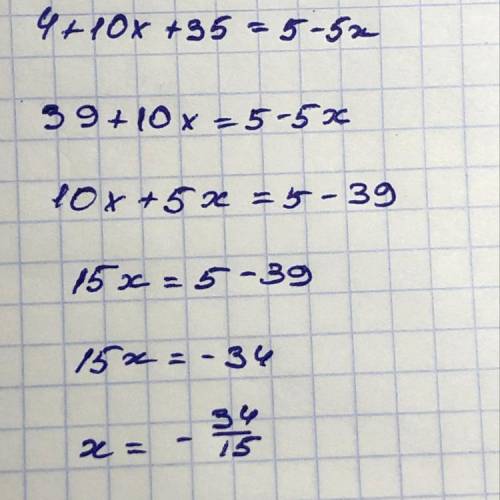 4+10x+35=5-5x
39+10x=5-5x
10x+5x=5-39
15x=5-39
15x=-34
x=-34/15